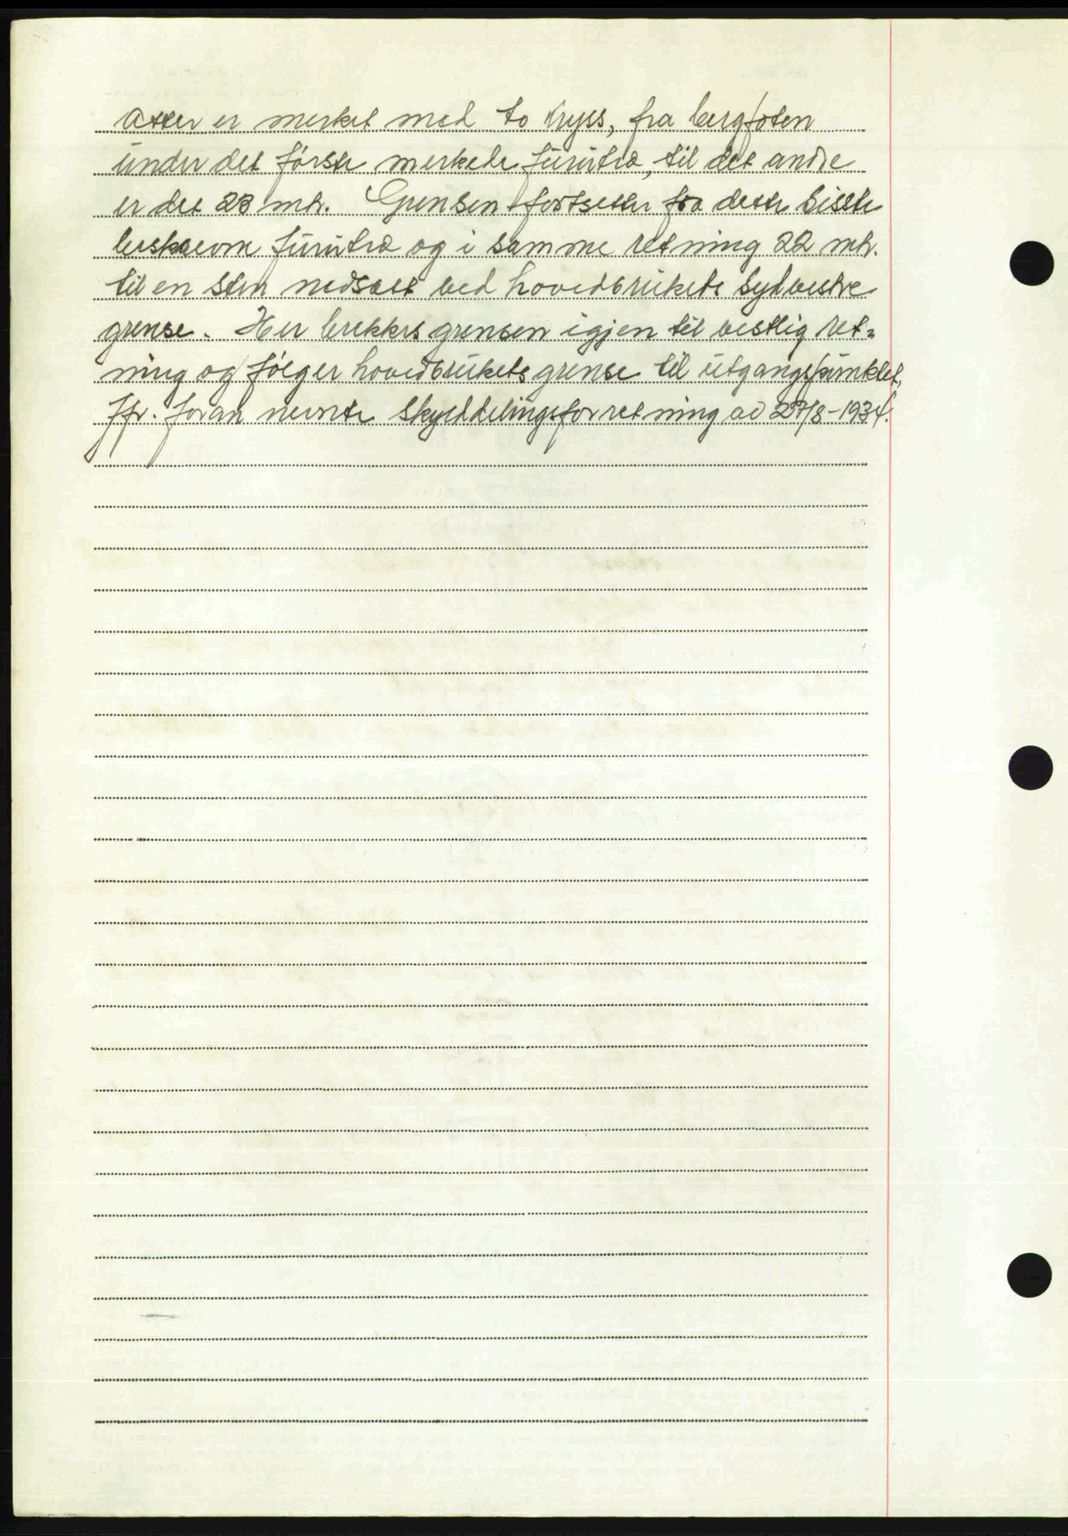 atter er merket med to kryss, fra bergfoten
under det første merkede furutræ, til det andre
er det 23 mtr. Grensen fortsetter fra dette siste
beskrevne furutræ og i samme retning 22 mtr.
til en sten nedsatt ved hovedbrukets sydvestre
grense. Her brekkes grensen igjen til vestlig ret=
ning og følger hovedbrukets grense til utgangspunktet,
Jfr. foran nevnte Skylddelingsforretning av 27/8-1934.